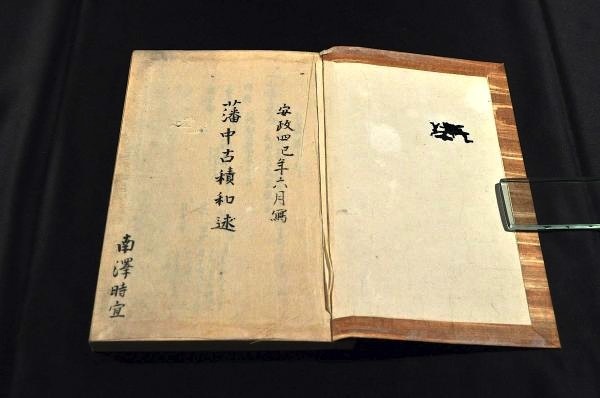 安政四巳年六月寫
藩中古積和述
南澤時宜